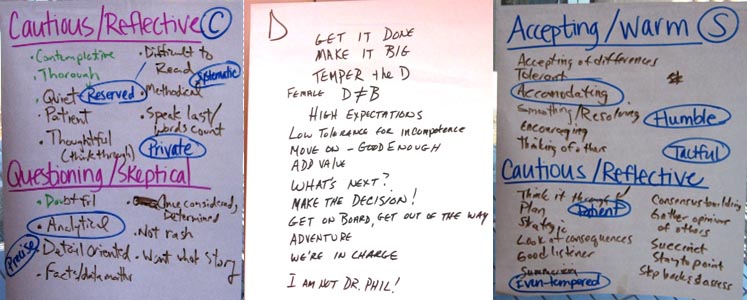 Cautious/Reflective C
• Contemplative
• Thorough
• Quiet Reserved
• Patient
• Thoughtful
(think through)
• Difficult to
Read Systematic
• Methodical
• Speak last/
words count
Private
Questioning/Skeptical
• Doubtful
• Analytical
Precise
• Detail oriented
• Facts/data
• Once considered,
Determined
• Not rash
• Want what story
D
GET IT DONE
MAKE IT BIG
TEMPER the D
FEMALE D≠B
HIGH EXPECTATIONS
LOW TOLERANCE FOR INCOMPETENCE
MOVE ON - GOOD ENOUGH
ADD VALUE
WHAT'S NEXT?
MAKE THE DECISION!
GET ON BOARD, GET OUT OF THE WAY
ADVENTURE
WE'RE IN CHARGE
I AM NOT DR. PHIL!
Accepting/Warm S
Accepting of differences
Tolerant
Accomodating
Smoothing/Resolving
Encouraging
Thinking of others
Humble
Tactful
Cautious/Reflective
Think it through
Plan Patient
Strategic
Look at consequences
Good listener
Summarizing
Even-tempered
Consensus building
Gather opinions
of others
Succinct
Stay to point
Step back & assess